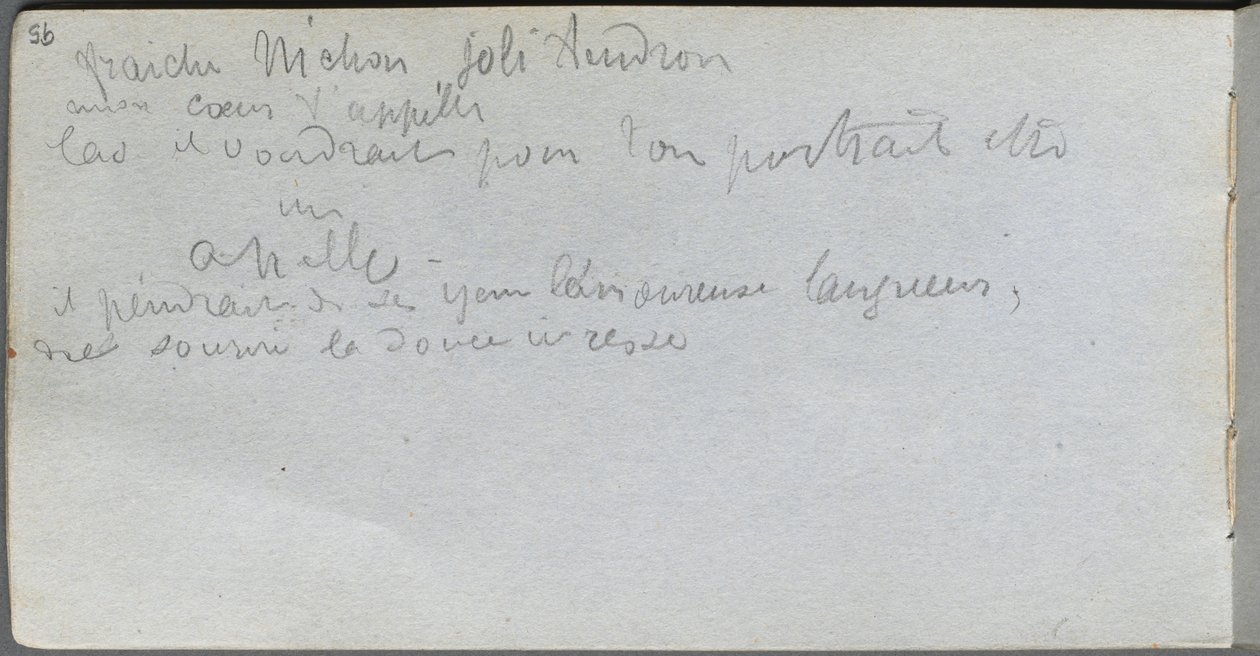 56
fraiche Nichon joli tendron
mon cœur t'appelle
las il voudrait pour ton portrait etre
un
apelle -
il peindrait de ses yeux l'amoureuse langueur,
du sourire la douce ivresse